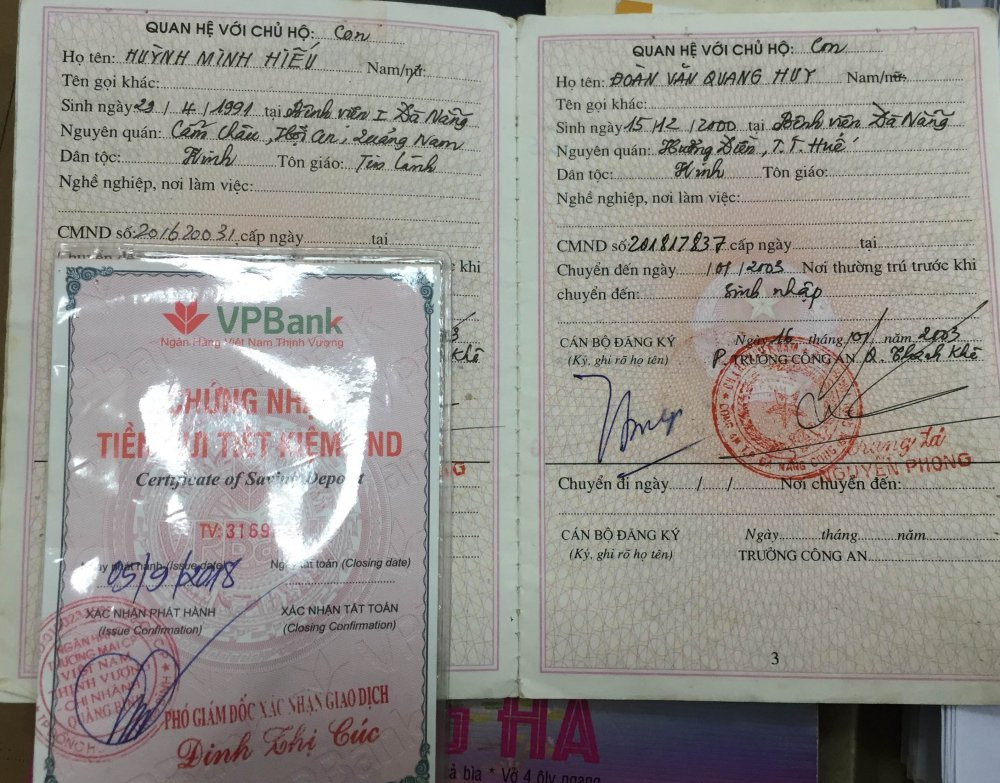 QUAN HỆ VỚI CHỦ HỘ: Con
Họ tên: HUỲNH MINH HIẾU Nam/nữ:
Tên gọi khác:
Sinh ngày 29 / 4 / 1991 tại Bệnh viện I Đà Nẵng
Nguyên quán: Cẩm Châu, Hội An, Quảng Nam
Dân tộc: Kinh Tôn giáo: Tin Lành
Nghề nghiệp, nơi làm việc:
CMND số: 201620031 cấp ngày tại
khi
Khê
VPBank
Ngân Hàng Việt Nam Thịnh Vượng
CHỨNG NHẬ
TIỀN GỬI TIẾT KIỆM VND
Certificate of Saving Deposit
TV: 3169
Ngày phát hành (Issue date) Ngày tất toán (Closing date)
05/9/2018
XÁC NHẬN PHÁT HÀNH XÁC NHẬN TẤT TOÁN
(Issue Confirmation) (Closing Confirmation)
NGÂN HÀNG
THƯƠNG MẠI CỔ
VIỆT NAM
THỊNH VƯỢNG
CHI NHÁNH
QUẢNG BÌNH
PHÓ GIÁM ĐỐC XÁC NHẬN GIAO DỊCH
Đinh Thị Cúc
QUAN HỆ VỚI CHỦ HỘ: Con
Họ tên: ĐOÀN VĂN QUANG HUY Nam/nữ:
Tên gọi khác:
Sinh ngày 15 / 12 / 2000 tại Bệnh viện Đà Nẵng
Nguyên quán: Hương Điền, T.T. Huế
Dân tộc: Kinh Tôn giáo:
Nghề nghiệp, nơi làm việc:
CMND số: 201817837 cấp ngày tại
Chuyển đến ngày / 01 / 2003 Nơi thường trú trước khi
chuyển đến: Sinh nhập
CÁN BỘ ĐĂNG KÝ Ngày 16 tháng 01 năm 2003
(Ký, ghi rõ họ tên) P. TRƯỞNG CÔNG AN Q. Thanh Khê
NGUYỄN PHONG
Chuyển đi ngày / / Nơi chuyển đến:
CÁN BỘ ĐĂNG KÝ Ngày tháng năm
(Ký, ghi rõ họ tên) TRƯỞNG CÔNG AN
3
HA
ả bìa * Vở 4 ôly ngang